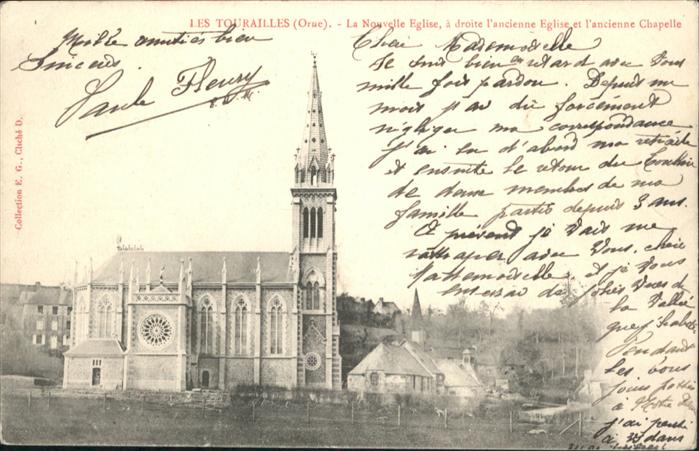 LES TOURAILLES (Orne). - La Nouvelle Eglise, à droite l'ancienne Eglise et l'ancienne Chapelle
Mille amitiés bien
Sincères
Paule Fleury
Collection E. G., Cliché D.
Chère Mademoiselle
Je suis bien en retard avec vous
mille fois pardon. Depuis un
mois j'ai dû forcément
négliger ma correspondance
J'ai eu d'abord ma retraite
et ensuite le retour du
de deux membres de ma
famille partis depuis 3 ans.
A présent je vais me
rattraper avec vous, chère
Mademoiselle. Et je vous
de jolies vues de
la
que j'habite
Pendant
les
jours
à Notre
j'ai pensé
à